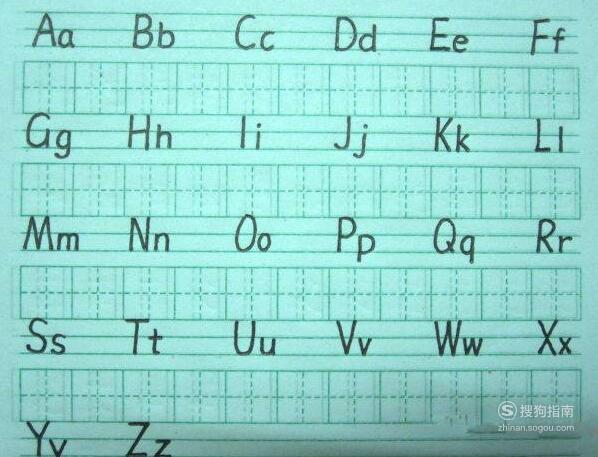 Aa Bb Cc Dd Ee Ff
Gg Hh Ii Jj Kk Ll
Mm Nn Oo Pp Qq Rr
Ss Tt Uu Vv Ww Xx
Yy Zz
搜狗指南
zhinan.sogou.com